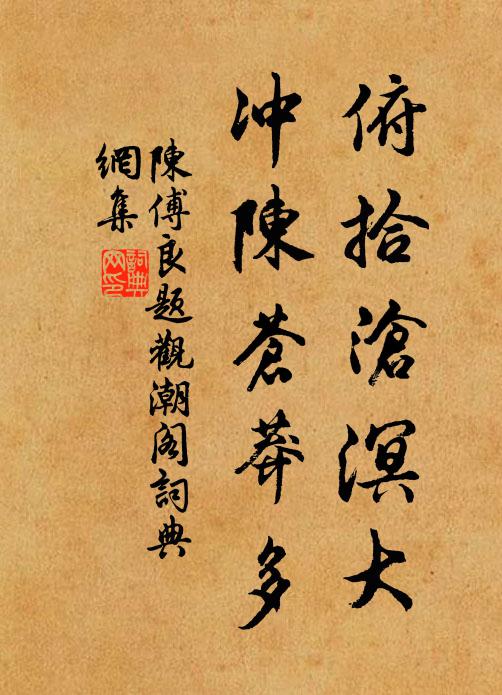 俯拾滄溟大
冲陳蒼莽多
陳傅良題觀潮閣詞典
網集
詞典
网印